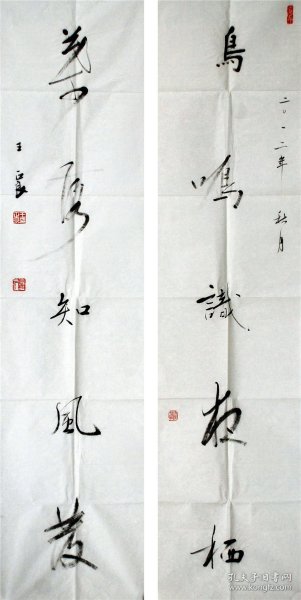 鳥鳴識夜栖
二〇一二年 秋月
葉知風發
王
孔夫子旧书网